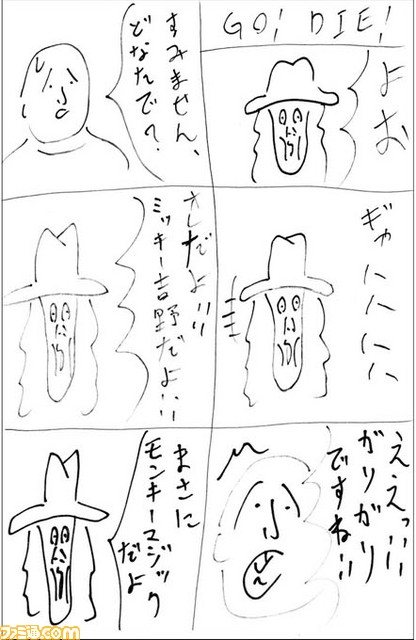 GO! DIE!
よお
すみません、
どなたで?
ギャハハハハ
オレだよ!!!
ミッキー吉野だよ!!!
ええっ!!!
がりがり
ですね!!!
まさに
モンキーマジック
だよ
ファミ通.com